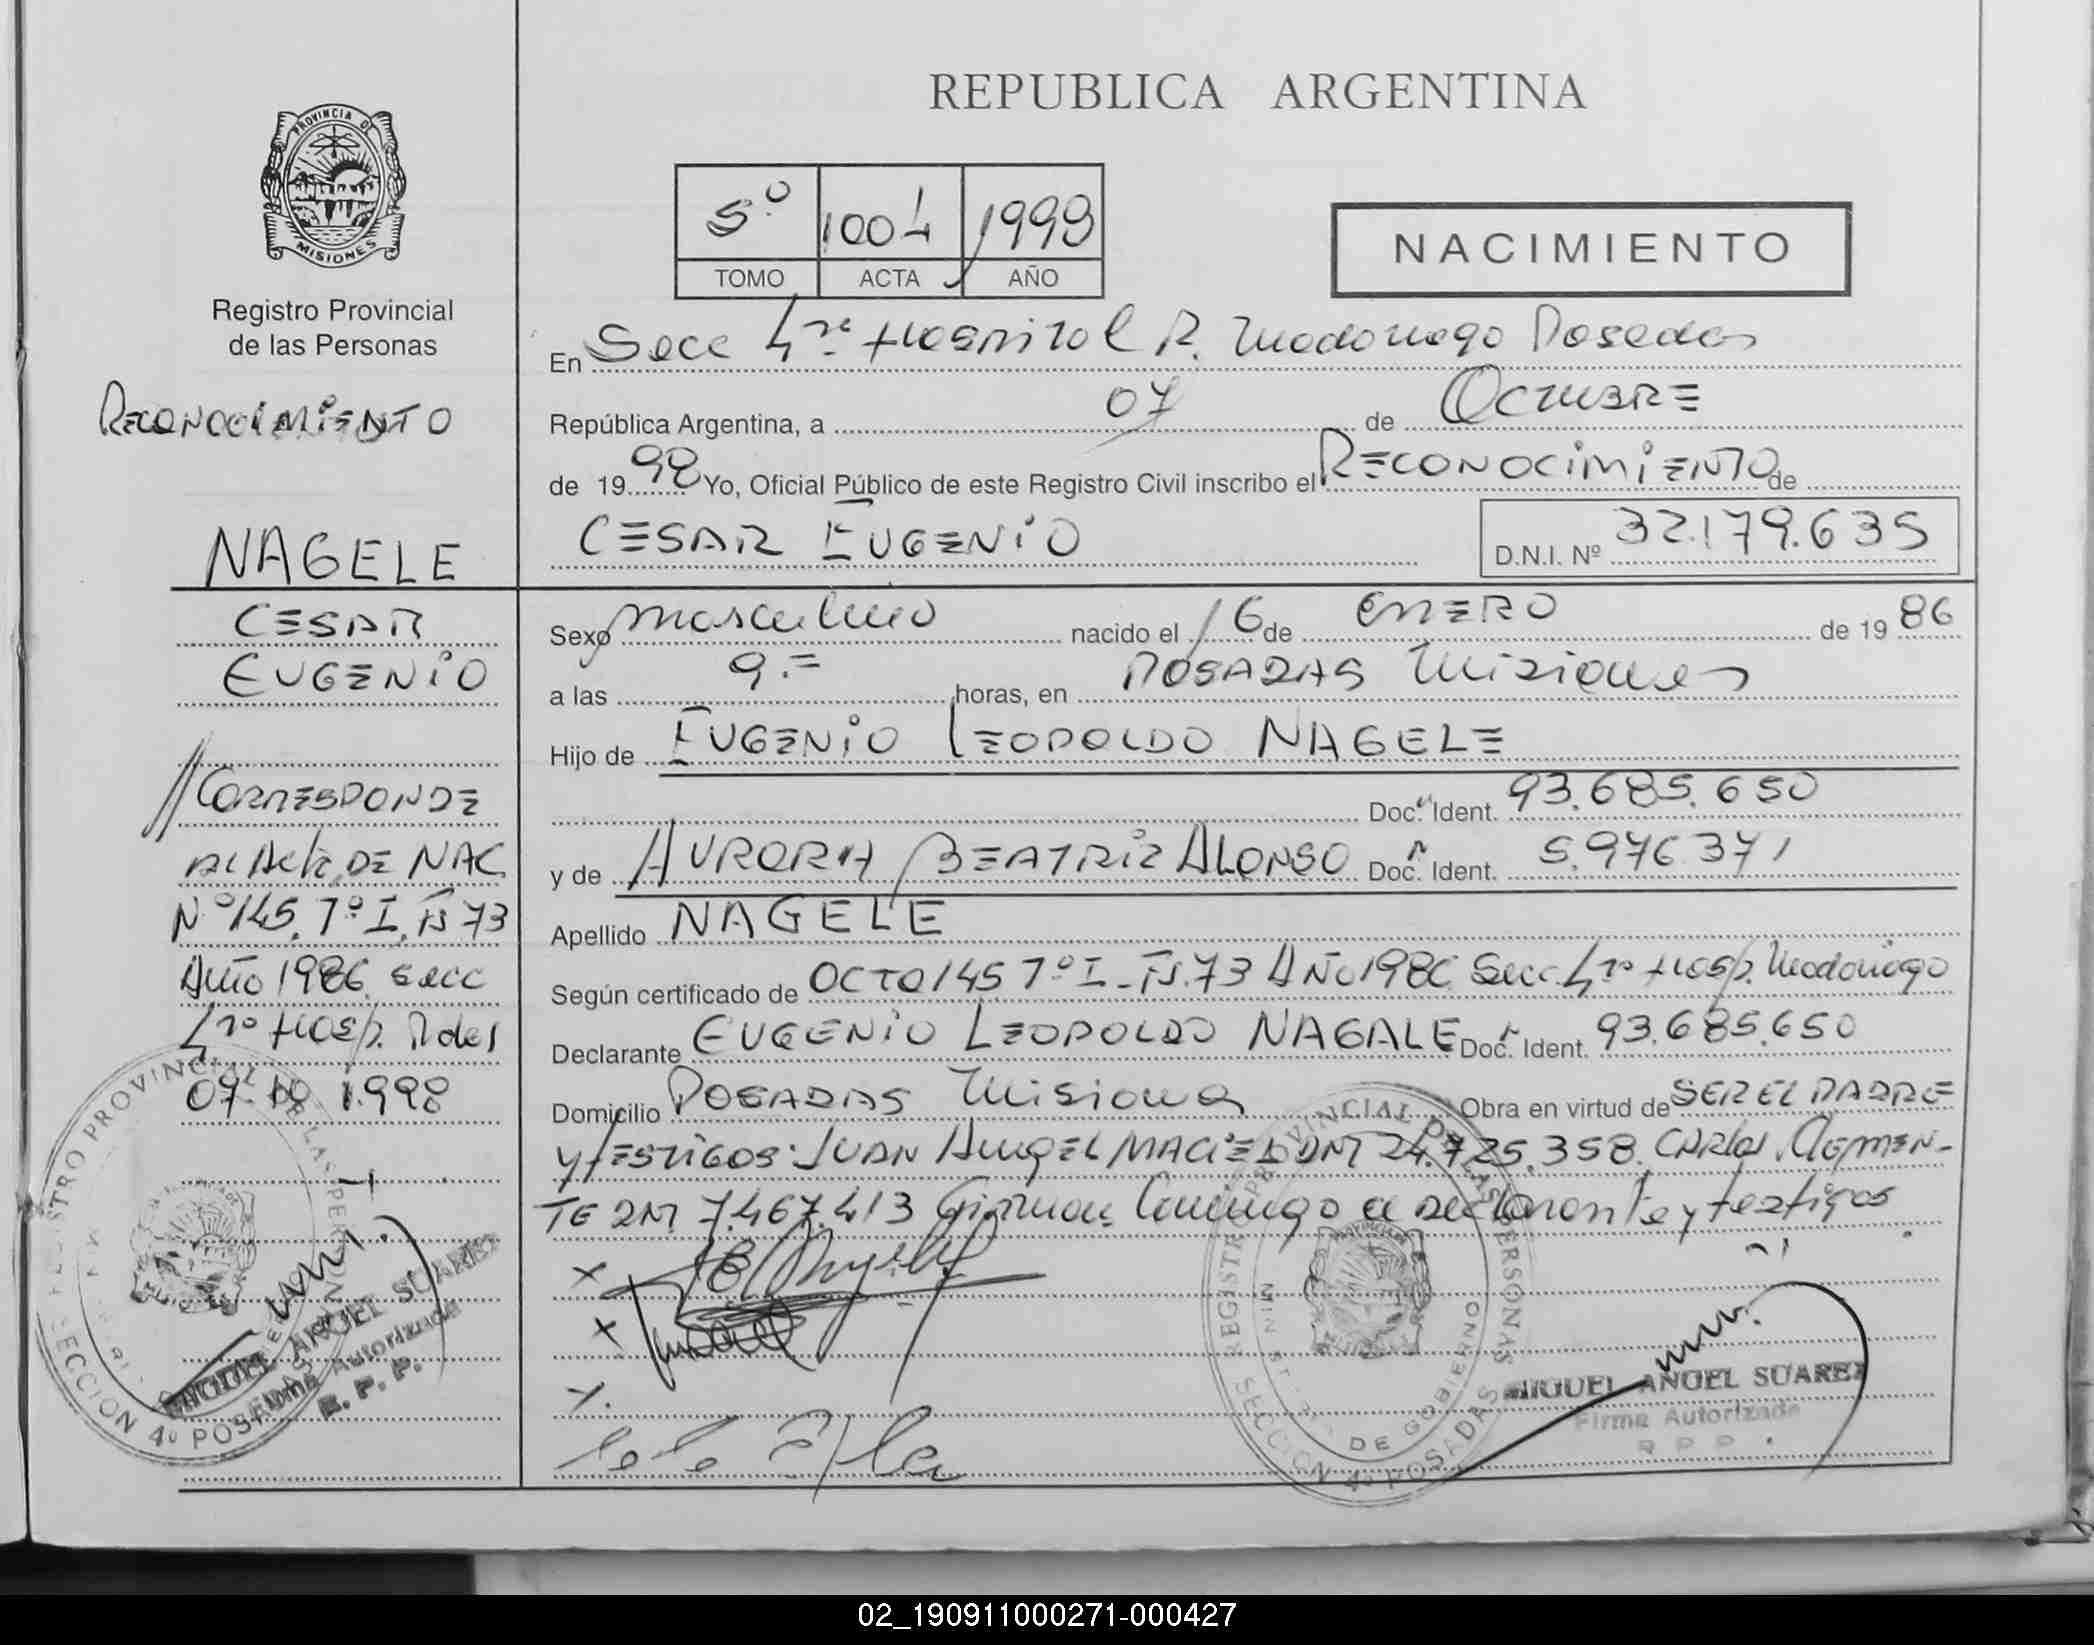 REPUBLICA ARGENTINA
PROVINCIA DE
MISIONES
Registro Provincial
de las Personas
5º 1004 1998
TOMO ACTA AÑO
NACIMIENTO
En Secc 4ta Hospital R. Madariaga Posadas
RECONOCIMIENTO
República Argentina, a 07 de OCTUBRE
de 1998 Yo, Oficial Público de este Registro Civil inscribo el RECONOCIMIENTO de
CESAR EUGENIO
D.N.I. Nº 32.179.635
NAGELE
CESAR
EUGENIO
Sexo masculino nacido el 16 de ENERO de 1986
a las 9.= horas, en POSADAS Misiones
Hijo de EUGENIO LEOPOLDO NAGELE
Doc. Ident. 93.685.650
y de AURORA BEATRIZ ALONSO Doc. Ident. 5.976.371
Apellido NAGELE
Según certificado de ACTA 145 Tº I - Fs. 73 AÑO 1986 Secc. 4ta Hosp. Madariaga
Declarante EUGENIO LEOPOLDO NAGALE Doc. Ident. 93.685.650
Domicilio POSADAS Misiones Obra en virtud de SER EL PADRE
Y TESTIGOS: JUAN ANGEL MACIEL DNI 24.725.358. CARLOS CLEMEN-
TE DNI 7.467.413 Firman Conmigo el declarante y testigos
//CORRESPONDE
AL Acta DE NAC
Nº 145. Tº I. Fs 73
Año 1986. Secc
4ta Hosp. Pdas
07 10 1.998
REGISTRO PROVINCIAL DE LAS PERSONAS
SECCION 4º POSADAS
MIGUEL ANGEL SUAREZ
Firma Autorizada
R. P. P.
REGISTRO PROVINCIAL DE LAS PERSONAS
MINISTERIO DE GOBIERNO
SECCION 4º POSADAS
MIGUEL ANGEL SUAREZ
Firma Autorizada
R P P .
02_190911000271-000427